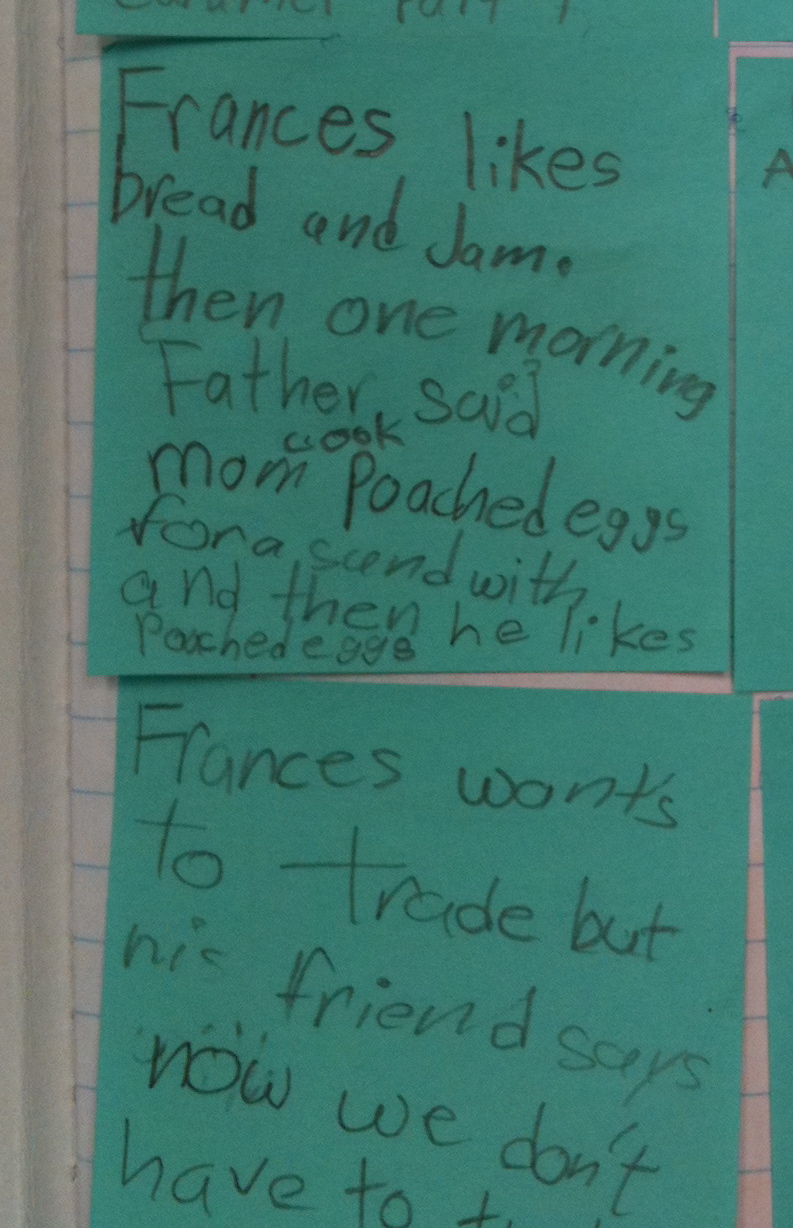 Frances likes
bread and Jam.
then one morning
Father said
cook
mom Poached eggs
for a sand with
and then he likes
Poached eggs
Frances wants
to trade but
his friend says
now we don't
have to
A